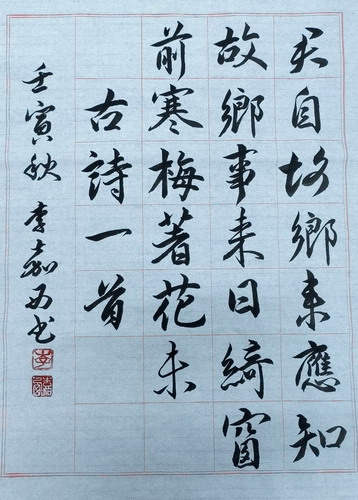 君自故鄉來應知
故鄉事來日綺窗
前寒梅著花未
古詩一首
壬寅秋 李嘉西书